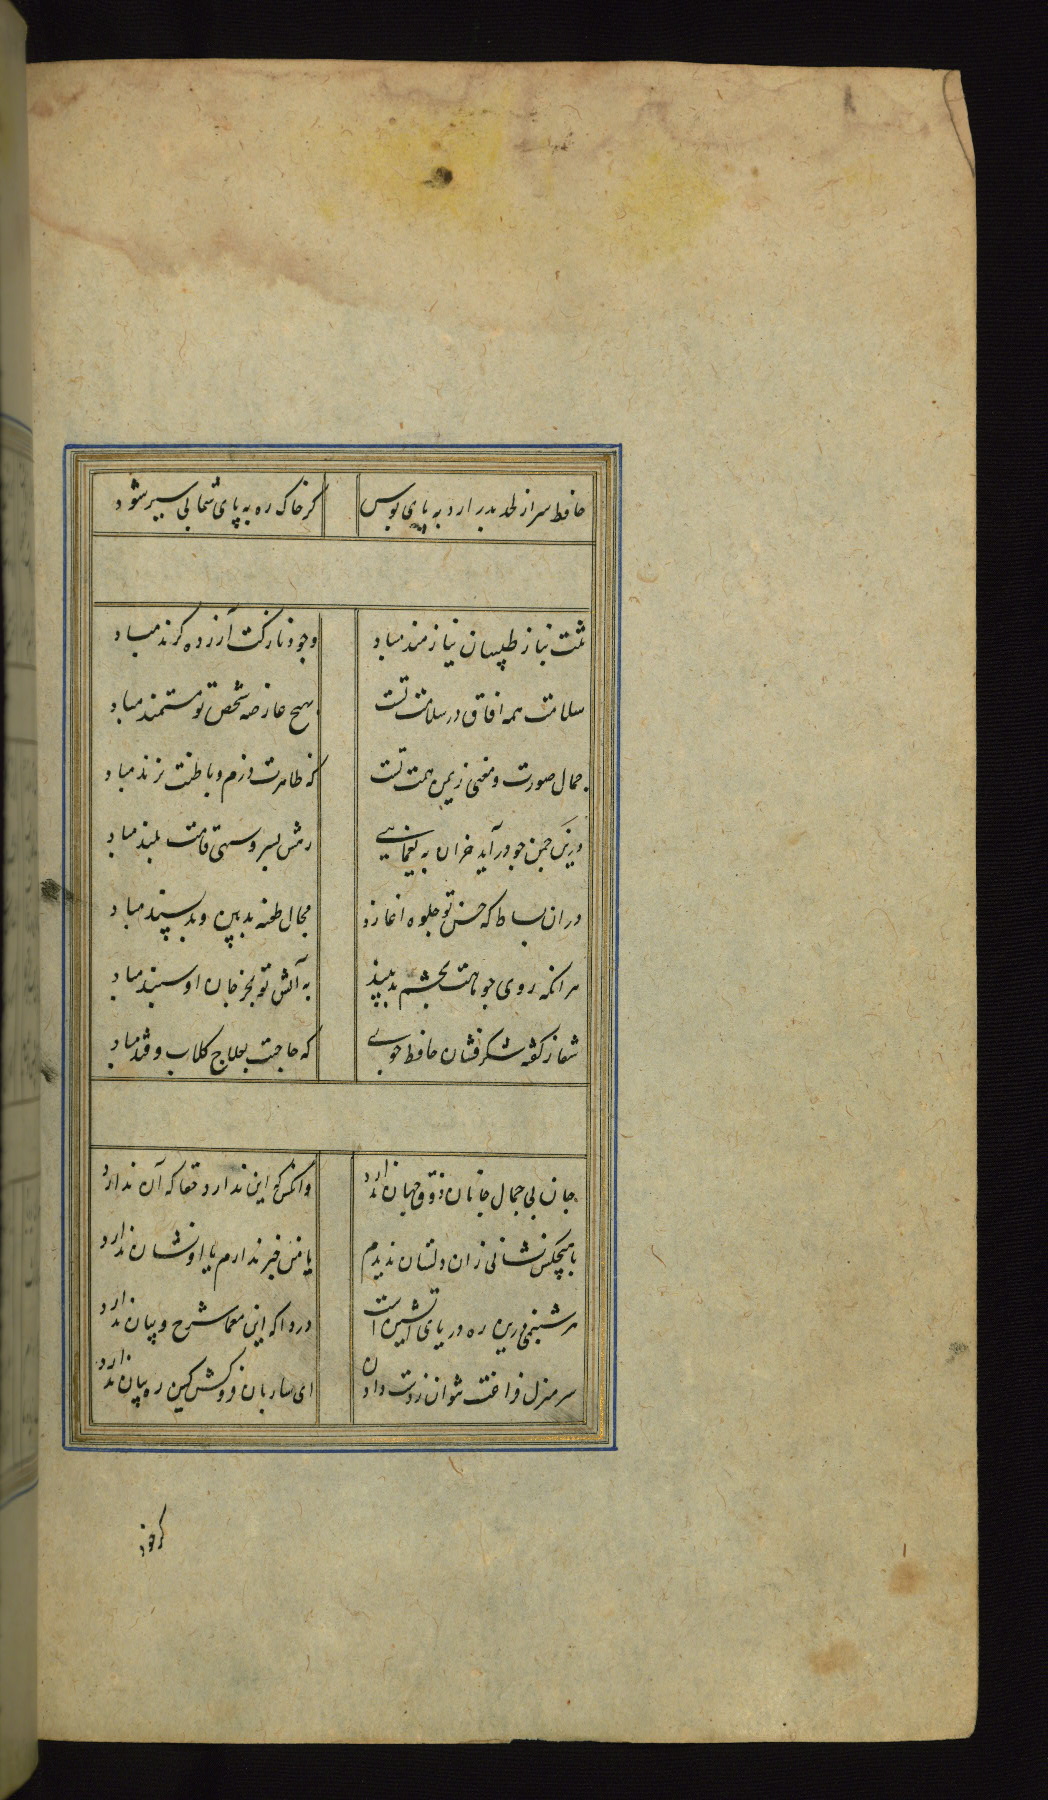 حافظ سر از لحد بدر آرد به پای بوس گر خاک ره به پای شما پی سپر شود
تنت بناز طبیبان نیازمند مباد وجود نازکت آزرده گزند مباد
سلامت همه افاق در سلامت تست بهیچ عارضه شخص تو مستمند مباد
جمال صورت و معنی ز یمن همت تست که ظاهرت دژم و باطنت نژند مباد
درین چمن چو در آید خزان به یغمایی رهش بسرو سهی قامت بلند مباد
دران بساط که حسن تو جلوه اغازد مجال طعنه بدبین و بدپسند مباد
هر انکه روی چو ماهت بچشم بد بیند بر آتش تو بجز جان او سپند مباد
شفا ز گفته شکرفشان حافظ جوی که حاجت بعلاج گلاب و قند مباد
جان بی جمال جانان ذوق جهان ندارد وانکس که این ندارد حقا که آن ندارد
با هیچکس نشانی زان دلستان ندیدم یا من خبر ندارم یا او نشان ندارد
هر شبنمی درین ره دریای آتشین است دردا که این معما شرح و بیان ندارد
سر منزل فراغت نتوان ز دست دادن ای ساربان فروکش کین ره پیان ندارد
گر خود